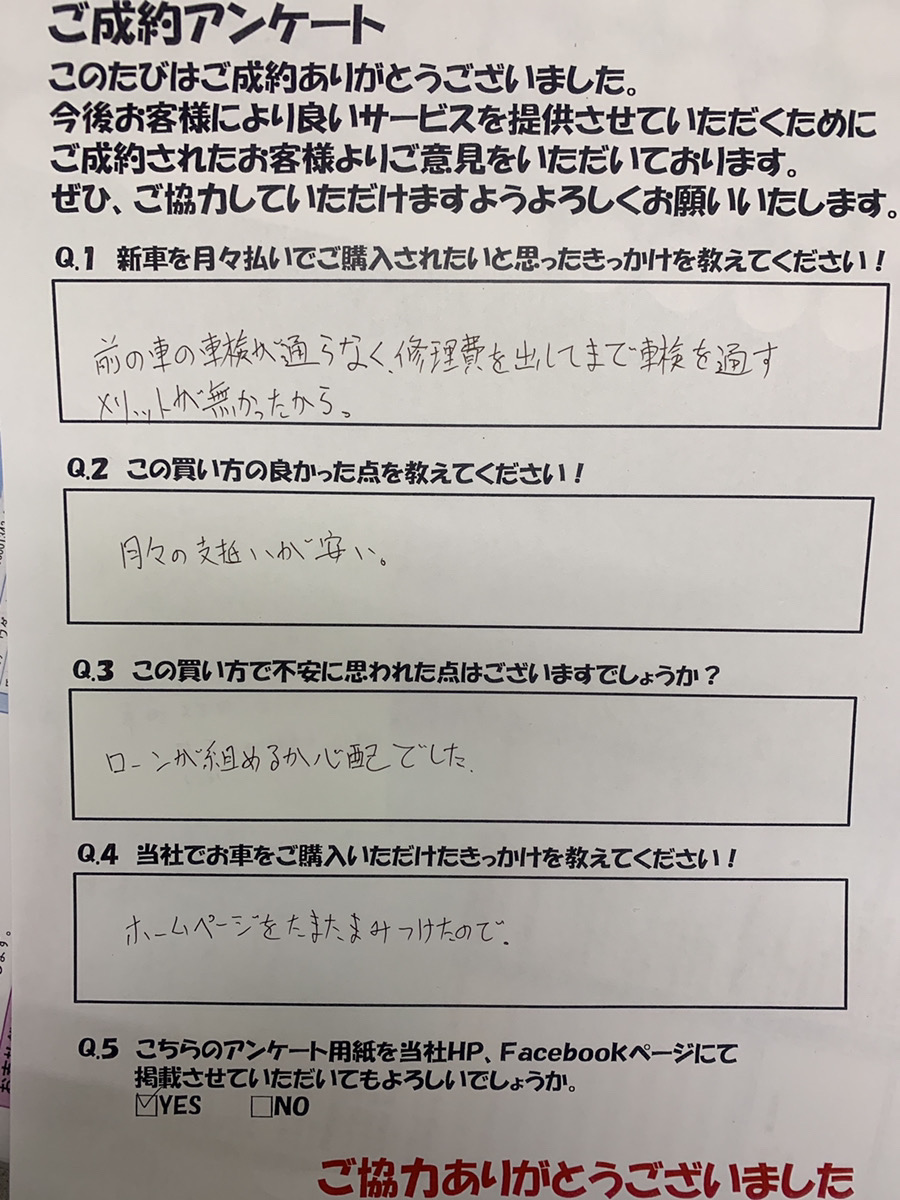 ご成約アンケート
このたびはご成約ありがとうございました。
今後お客様により良いサービスを提供させていただくために
ご成約されたお客様よりご意見をいただいております。
ぜひ、ご協力していただけますようよろしくお願いいたします。
Q.1 新車を月々払いでご購入されたいと思ったきっかけを教えてください！
前の車の車検が通らなく、修理費を出してまで車検を通す
メリットが無かったから。
Q.2 この買い方の良かった点を教えてください！
月々の支払いが安い。
Q.3 この買い方で不安に思われた点はございますでしょうか？
ローンが組めるか心配でした.
Q.4 当社でお車をご購入いただけたきっかけを教えてください！
ホームページをたまたまみつけたので.
Q.5 こちらのアンケート用紙を当社HP、Facebookページにて
掲載させていただいてもよろしいでしょうか。
☑YES □NO
ご協力ありがとうございました